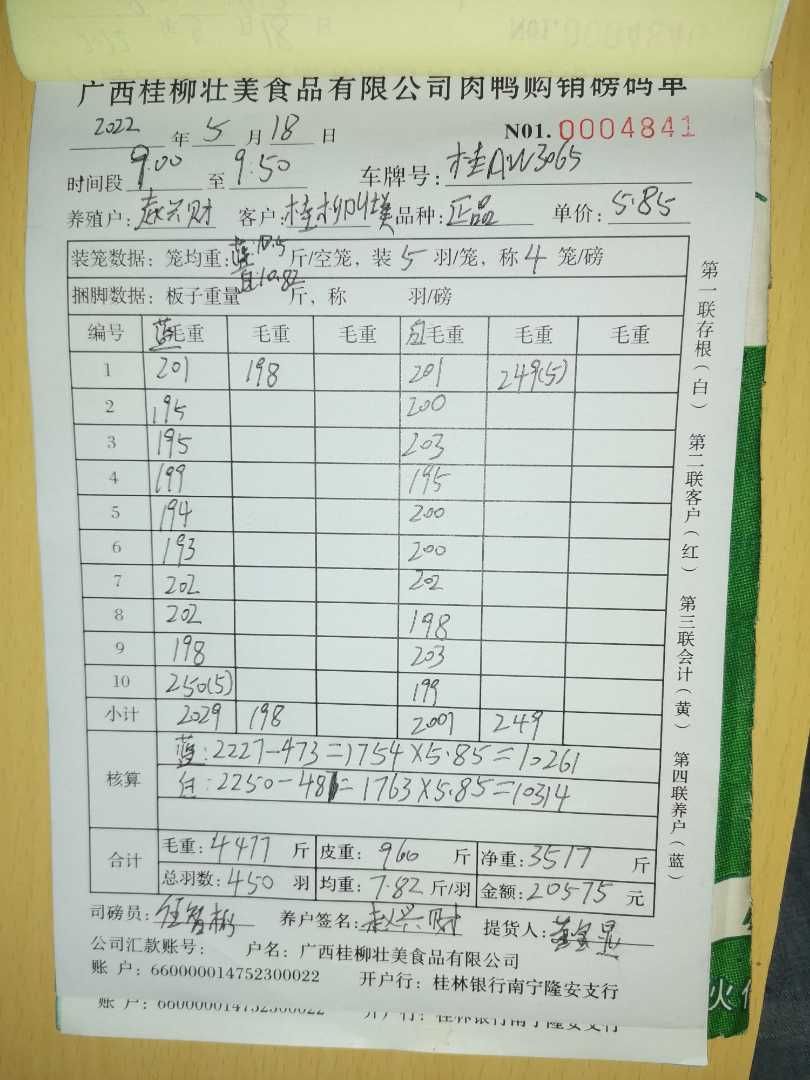 广西桂柳壮美食品有限公司肉鸭购销磅码单
2022 年 5 月 18 日 N01. 0004841
时间段 9.00 至 9.50 车牌号: 桂AW3065
养殖户: 兴财 客户: 桂柳 品种: 正品 单价: 5.85
装笼数据: 笼均重: 蓝10.5 白10.82 斤/空笼, 装 5 羽/笼, 称 4 笼/磅
捆脚数据: 板子重量 斤, 称 羽/磅
编号 蓝毛重 毛重 毛重 白毛重 毛重 毛重
1 201 198 201 249(5)
2 195 200
3 195 203
4 199 195
5 194 200
6 193 200
7 202 202
8 202 198
9 198 203
10 250(5) 199
小计 2029 198 2001 249
核算
蓝:2227-473=1754×5.85=10261
白:2250-487=1763×5.85=10314
合计
毛重: 4477 斤 皮重: 960 斤 净重: 3517 斤
总羽数: 450 羽 均重: 7.82 斤/羽 金额: 20575 元
司磅员: 养户签名: 兴财 提货人:
公司汇款账号: 户名: 广西桂柳壮美食品有限公司
账 户: 660000014752300022 开户行: 桂林银行南宁隆安支行
账 户: 660000014752300022 开户行: 桂林银行南宁隆安支行
第一联存根(白) 第二联客户(红) 第三联会计(黄) 第四联养户(蓝)